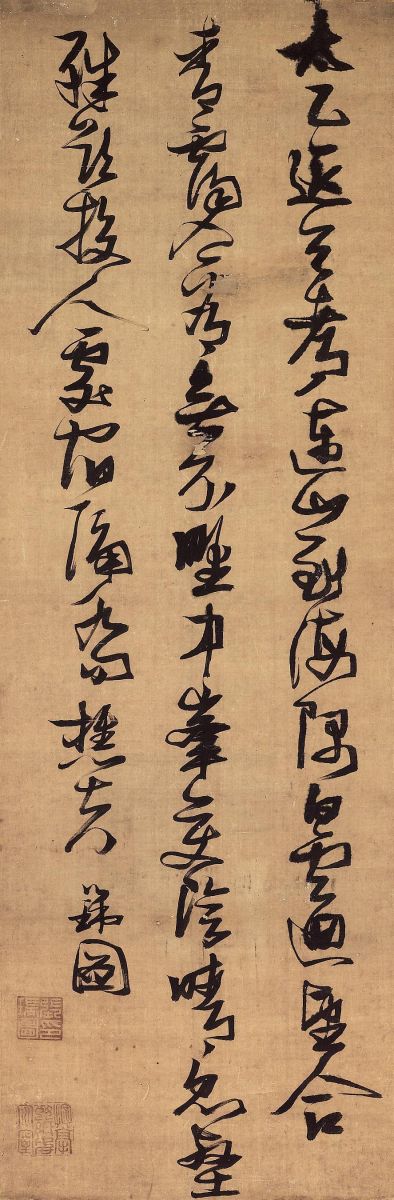 太乙近天都連山到海隅白雲迴望合
青靄入看無分野中峯變陰晴衆壑
殊欲投人處宿隔水問樵夫 瑞圖